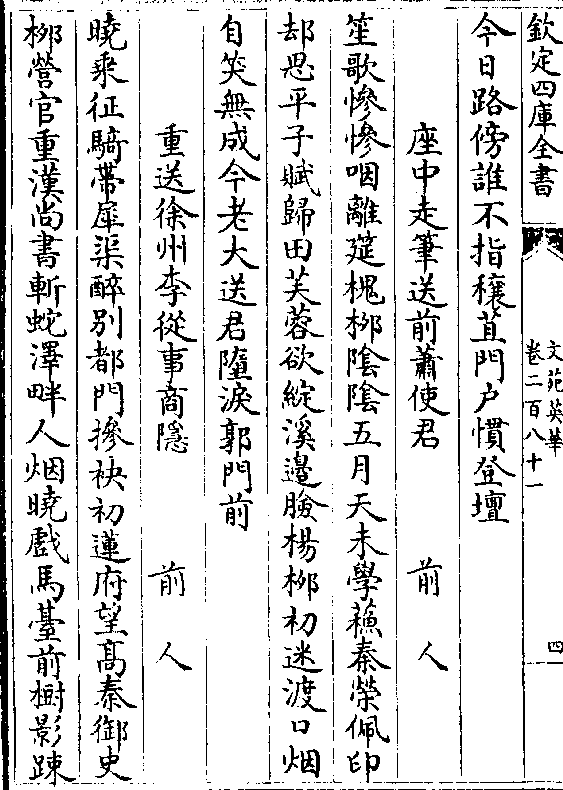 欽定四庫全書
文苑英華
卷二百八十一
四
今日路傍誰不指穰苴門户慣登壇
座中走筆送前蕭使君　前人
笙歌慘慘咽離筵槐栁陰陰五月天未學蘓秦榮佩印
却思平子賦歸田芙蓉欲綻溪邉臉楊栁初迷渡口烟
自笑無成今老大送君墮淚郭門前
重送徐州李從事商隱　前人
曉乘征騎帶犀渠醉别都門摻袂初蓮府望髙秦御史
栁營官重漢尚書斬蛇澤畔人烟曉戲馬臺前樹影踈